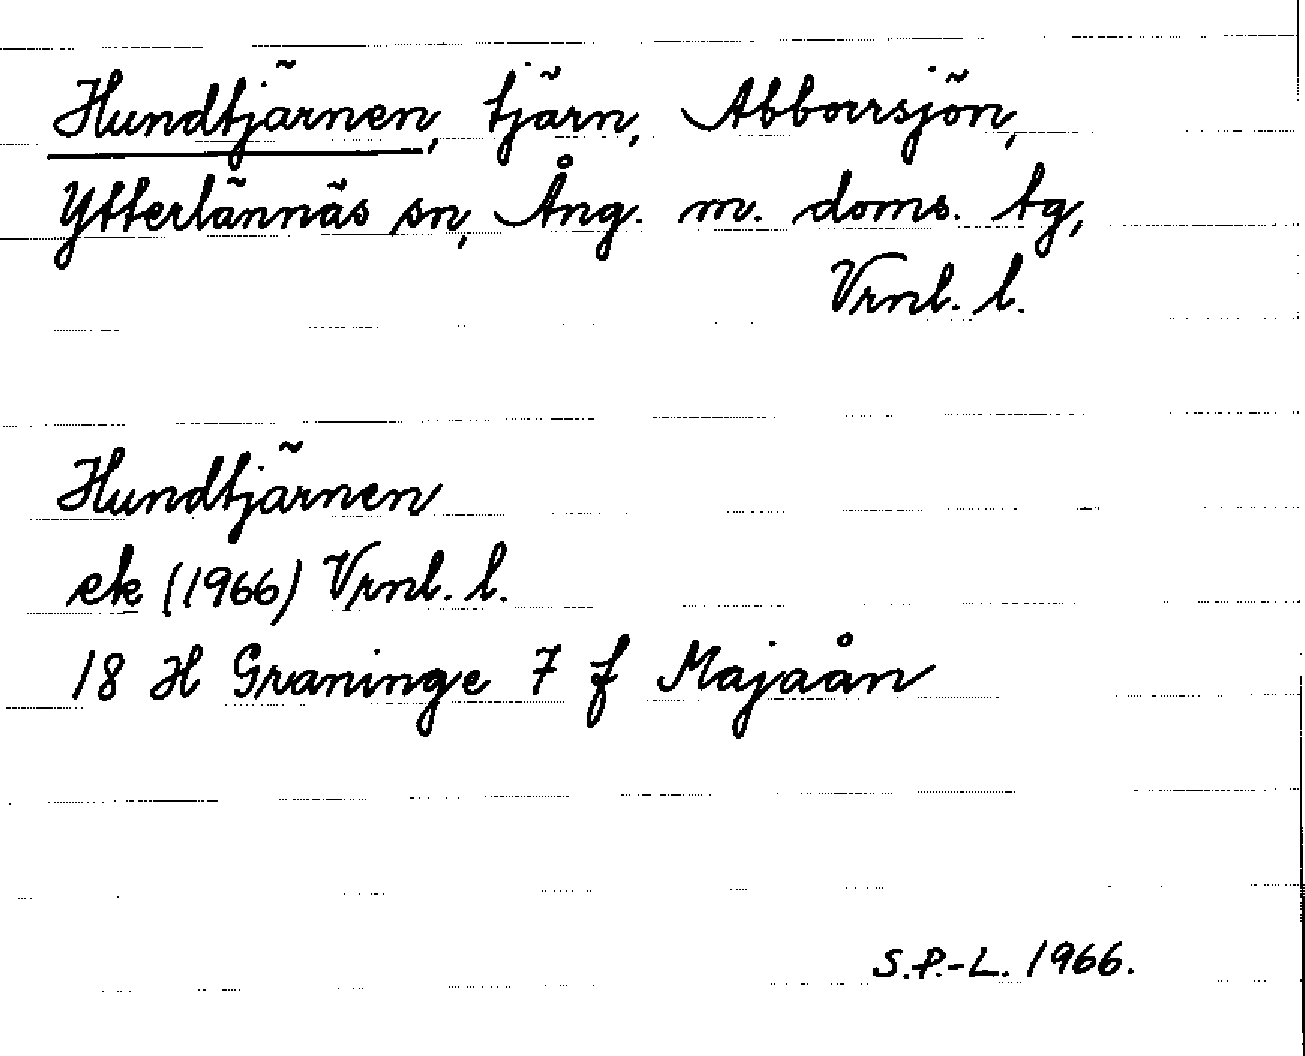 Hundtjärnen, tjärn, Abborrsjön,
Ytterlännäs sn, Ång. m. doms. tg,
Vrnl. l.
Hundtjärnen
ek (1966) Vrnl. l.
18 H Graninge 7 f Majaån
S.P.-L. 1966.